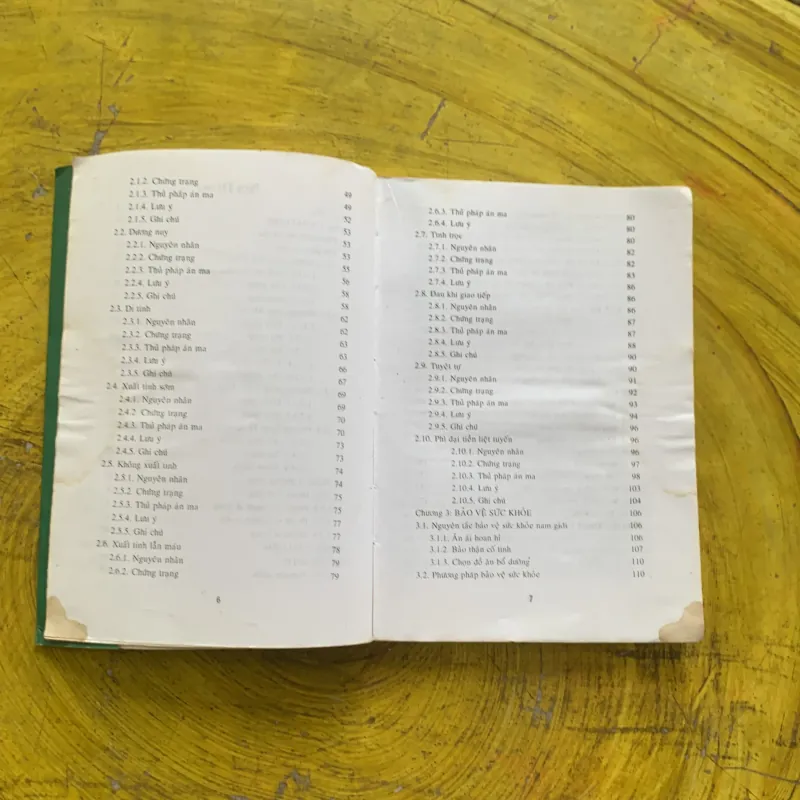 2.1.2. Chứng trạng 49
2.1.3. Thủ pháp án ma 49
2.1.4. Lưu ý 52
2.1.5. Ghi chú 53
2.2. Dương nuy 53
2.2.1. Nguyên nhân 53
2.2.2. Chứng trạng 55
2.2.3. Thủ pháp án ma 56
2.2.4. Lưu ý 58
2.2.5. Ghi chú 58
2.3. Di tinh 62
2.3.1. Nguyên nhân 62
2.3.2. Chứng trạng 63
2.3.3. Thủ pháp án ma 63
2.3.4. Lưu ý 66
2.3.5. Ghi chú 67
2.4. Xuất tinh sớm 69
2.4.1. Nguyên nhân 69
2.4.2 Chứng trạng 70
2.4.3. Thủ pháp án ma 70
2.4.4. Lưu ý 73
2.4.5. Ghi chú 73
2.5. Không xuất tinh 74
2.5.1. Nguyên nhân 74
2.5.2. Chứng trạng 75
2.5.3. Thủ pháp án ma 75
2.5.4. Lưu ý 77
2.5.5. Ghi chú 77
2.6. Xuất tinh lẫn máu 78
2.6.1. Nguyên nhân 79
2.6.2. Chứng trạng 79
6
2.6.3. Thủ pháp án ma 80
2.6.4. Lưu ý 80
2.7. Tinh trọc 80
2.7.1. Nguyên nhân 82
2.7.2. Chứng trạng 82
2.7.3 Thủ pháp án ma 83
2.7.4. Lưu ý 86
2.8. Đau khi giao tiếp 86
2.8.1. Nguyên nhân 86
2.8.2. Chứng trạng 87
2.8.3. Thủ pháp án ma 87
2.8.4. Lưu ý 88
2.8.5. Ghi chú 90
2.9. Tuyệt tự 90
2.9.1. Nguyên nhân 91
2.9.2. Chứng trạng 92
2.9.3. Thủ pháp án ma 93
2.9.4. Lưu ý 94
2.9.5. Ghi chú 96
2.10. Phì đại tiền liệt tuyến 96
2.10.1. Nguyên nhân 96
2.10.2. Chứng trạng 97
2.10.3. Thủ pháp án ma 98
2.10.4. Lưu ý 103
2.10.5. Ghi chú 104
Chương 3: BẢO VỆ SỨC KHỎE 106
3.1. Nguyên tắc bảo vệ sức khỏe nam giới 106
3.1.1. Ân ái hoan hỉ 106
3.1.2. Bảo thận cố tinh 107
3.1.3. Chọn đồ ăn bổ dưỡng 110
3.2. Phương pháp bảo vệ sức khỏe 110
7